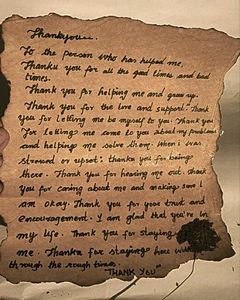 Thankyou...
To the person who has helped me,
Thanku you for all the good times and bad
times.
Thank you for helping me and grow up.
Thank you for the love and support. Thank
you for letting me be myself to you. Thank you
For letting me come to you about my problems
and helping me solve them. When i was
stressed or upset. thanku you for being
there. Thank you for hearing me out. Thank
you for caring about me and making sure I
am okay. Thank you for your trust and
encouragement. I am glad that you're in
my life. Thank you for staying
me. Thanku for staying here with
through the rough time.
"THANK YOU"